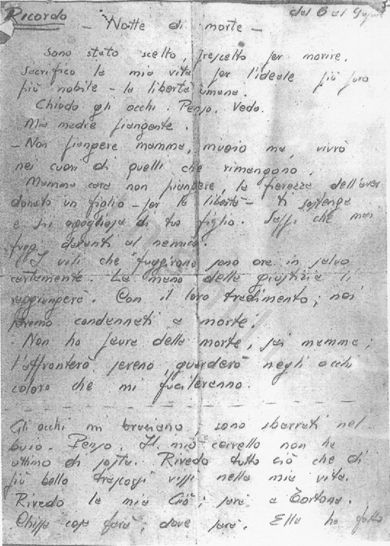 Ricordo
dal 6 al 9
- Notte di morte -
sono stato scelto, prescelto per morire.
Sacrifico la mia vita per l'ideale più puro
più nobile - la libertà umana.
Chiudo gli occhi. Penso. Vedo.
Mia madre piangente.
- Non piangere mamma, muoio ma vivrò
nei cuori di quelli che rimangono.
Mamma cara non piangere, la fierezza dell'aver
donato un figlio - per la libertà - ti sostenga
e sii orgogliosa di tuo figlio. Sappi che mai
davanti al nemico.
I vili che fuggirono sono ora in salvo
certamente. La mano della giustizia li
raggiungerà. Con il loro tradimento, noi
fummo condannati a morte.
Non ho paura della morte, sai mamma;
l'affronterò sereno, guarderò negli occhi
coloro che mi fucileranno.
Gli occhi mi bruciano, sono sbarrati nel
buio. Penso. Il mio cervello non ha
attimo di sosta. Rivedo tutto ciò che di
più bello trascorsi vissi nella mia vita.
Rivedo la mia Ciò; sarà a Tortona.
Chissà cosa farà; dove sarà. Ella ha fatto